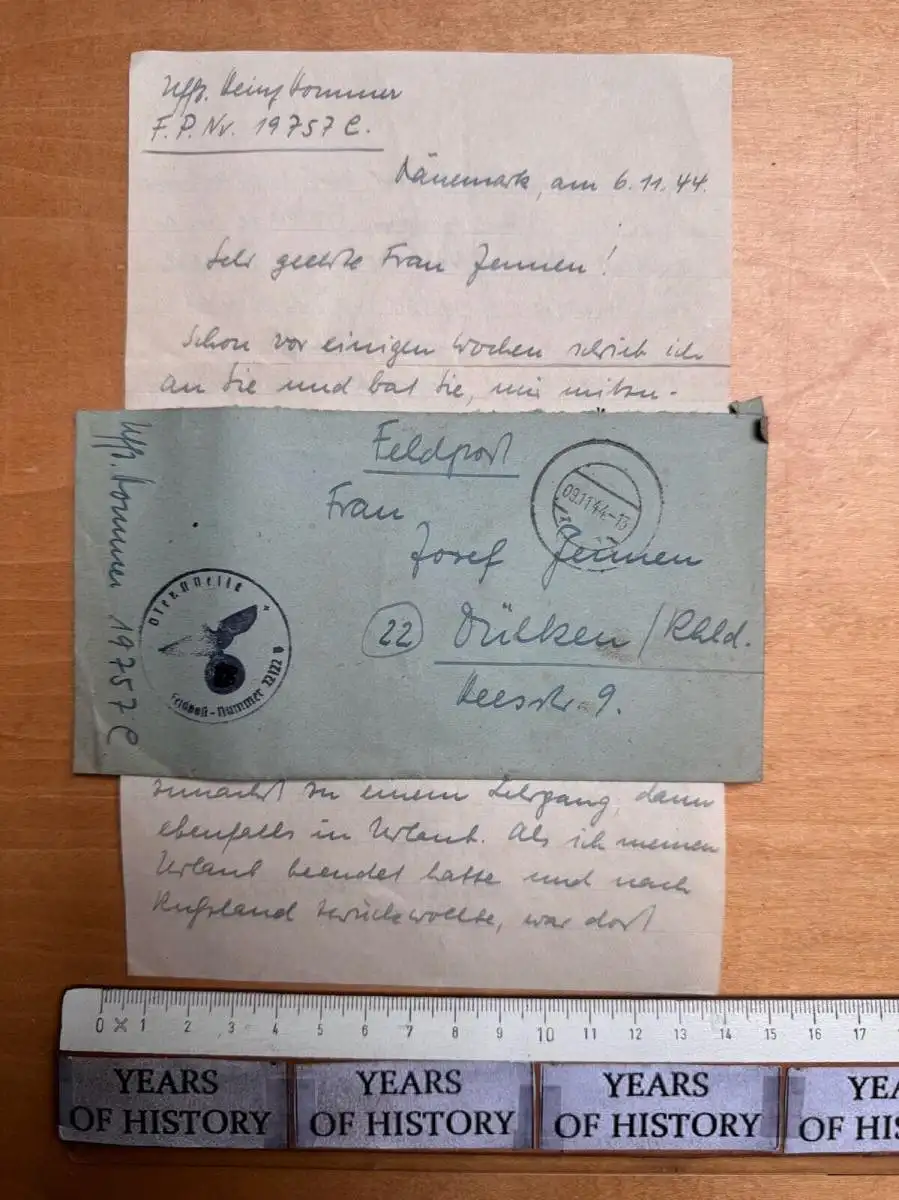 Uffz. Heinz Hommer
F. P. Nr. 19757 C.
Dänemark, am 6.11.44.
Sehr geehrte Frau Jennen!
Schon vor einigen Wochen schrieb ich
an Sie und bat Sie, mir mitzu-
Uffz. Hommer 19757 C
Feldpost
09.11.44-13
Frau
Josef Jennen
(22) Dülken / Rhld.
Heesstr. 9.
Dienststelle *
Feldpost-Nummer 22122 B
zunächst zu einem Lehrgang, dann
ebenfalls in Urlaub. Als ich meinen
Urlaub beendet hatte und nach
Rußland zurückwollte, war dort
0 1 2 3 4 5 6 7 8 9 10 11 12 13 14 15 16 17
YEARS OF HISTORY
YEARS OF HISTORY
YEARS OF HISTORY
YE
OF HIS